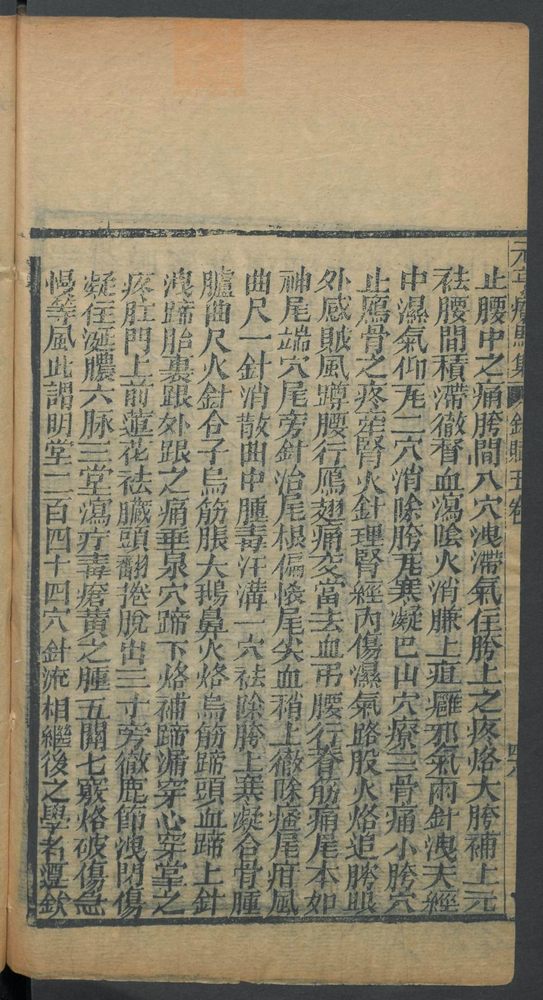 元亨療馬集 針賦五卷 四六
止腰中之痛胯間八穴洩滯氣住胯上之疼烙大胯補上元
祛腰間積滯徹腎血瀉陰火消臁上疽癰邪氣兩針洩天經
中濕氣仰瓦二穴消除胯瓦寒凝巴山穴療三骨痛小胯穴
止鴈骨之疼痠腎火針理腎經內傷濕氣路股火烙追胯眼
外感賊風蹲腰行鴈翅痛交當去血弔腰行脊筋痛尾本如
神尾端穴尾旁針治尾根偏㨪尾尖血稍上徹除瘙尾疳風
曲尺一針消散曲中腫毒汗溝一穴祛除胯上寒凝合骨腫
臚曲尺火針合子烏筋脹大鵝鼻火烙烏筋蹄頭血蹄上針
洩蹄胎裏跟外跟之痛垂泉穴蹄下烙補蹄漏穿心穿掌之
疼肛門上前蓮花祛臟頭翻捲脫出三寸旁徹鹿節洩閃傷
凝住涎膿六脉三堂瀉疔毒瘡黃之腫五關七竅烙破傷急
慢等風此謂明堂二百四十四穴針流相繼後之學者遵欽